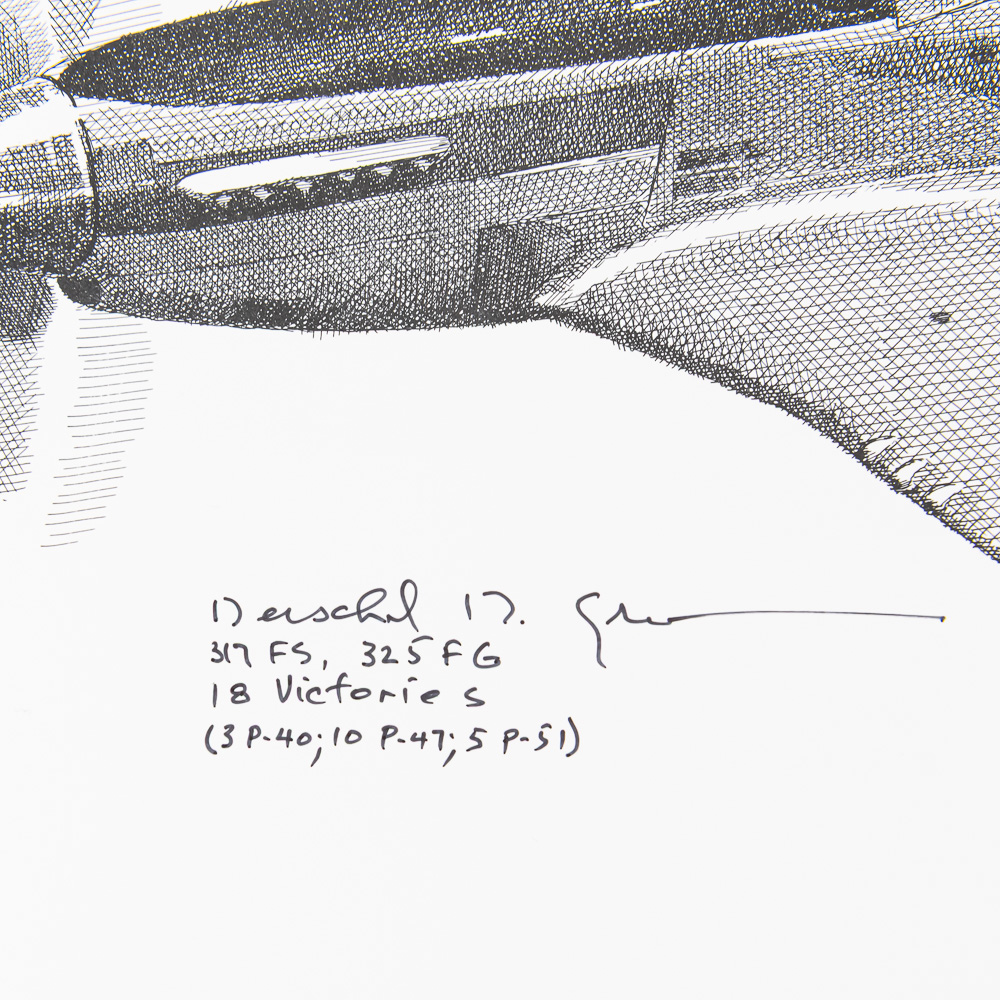 Herschel H. Green
317 FS, 325 FG
18 Victories
(3 P-40; 10 P-47; 5 P-51)